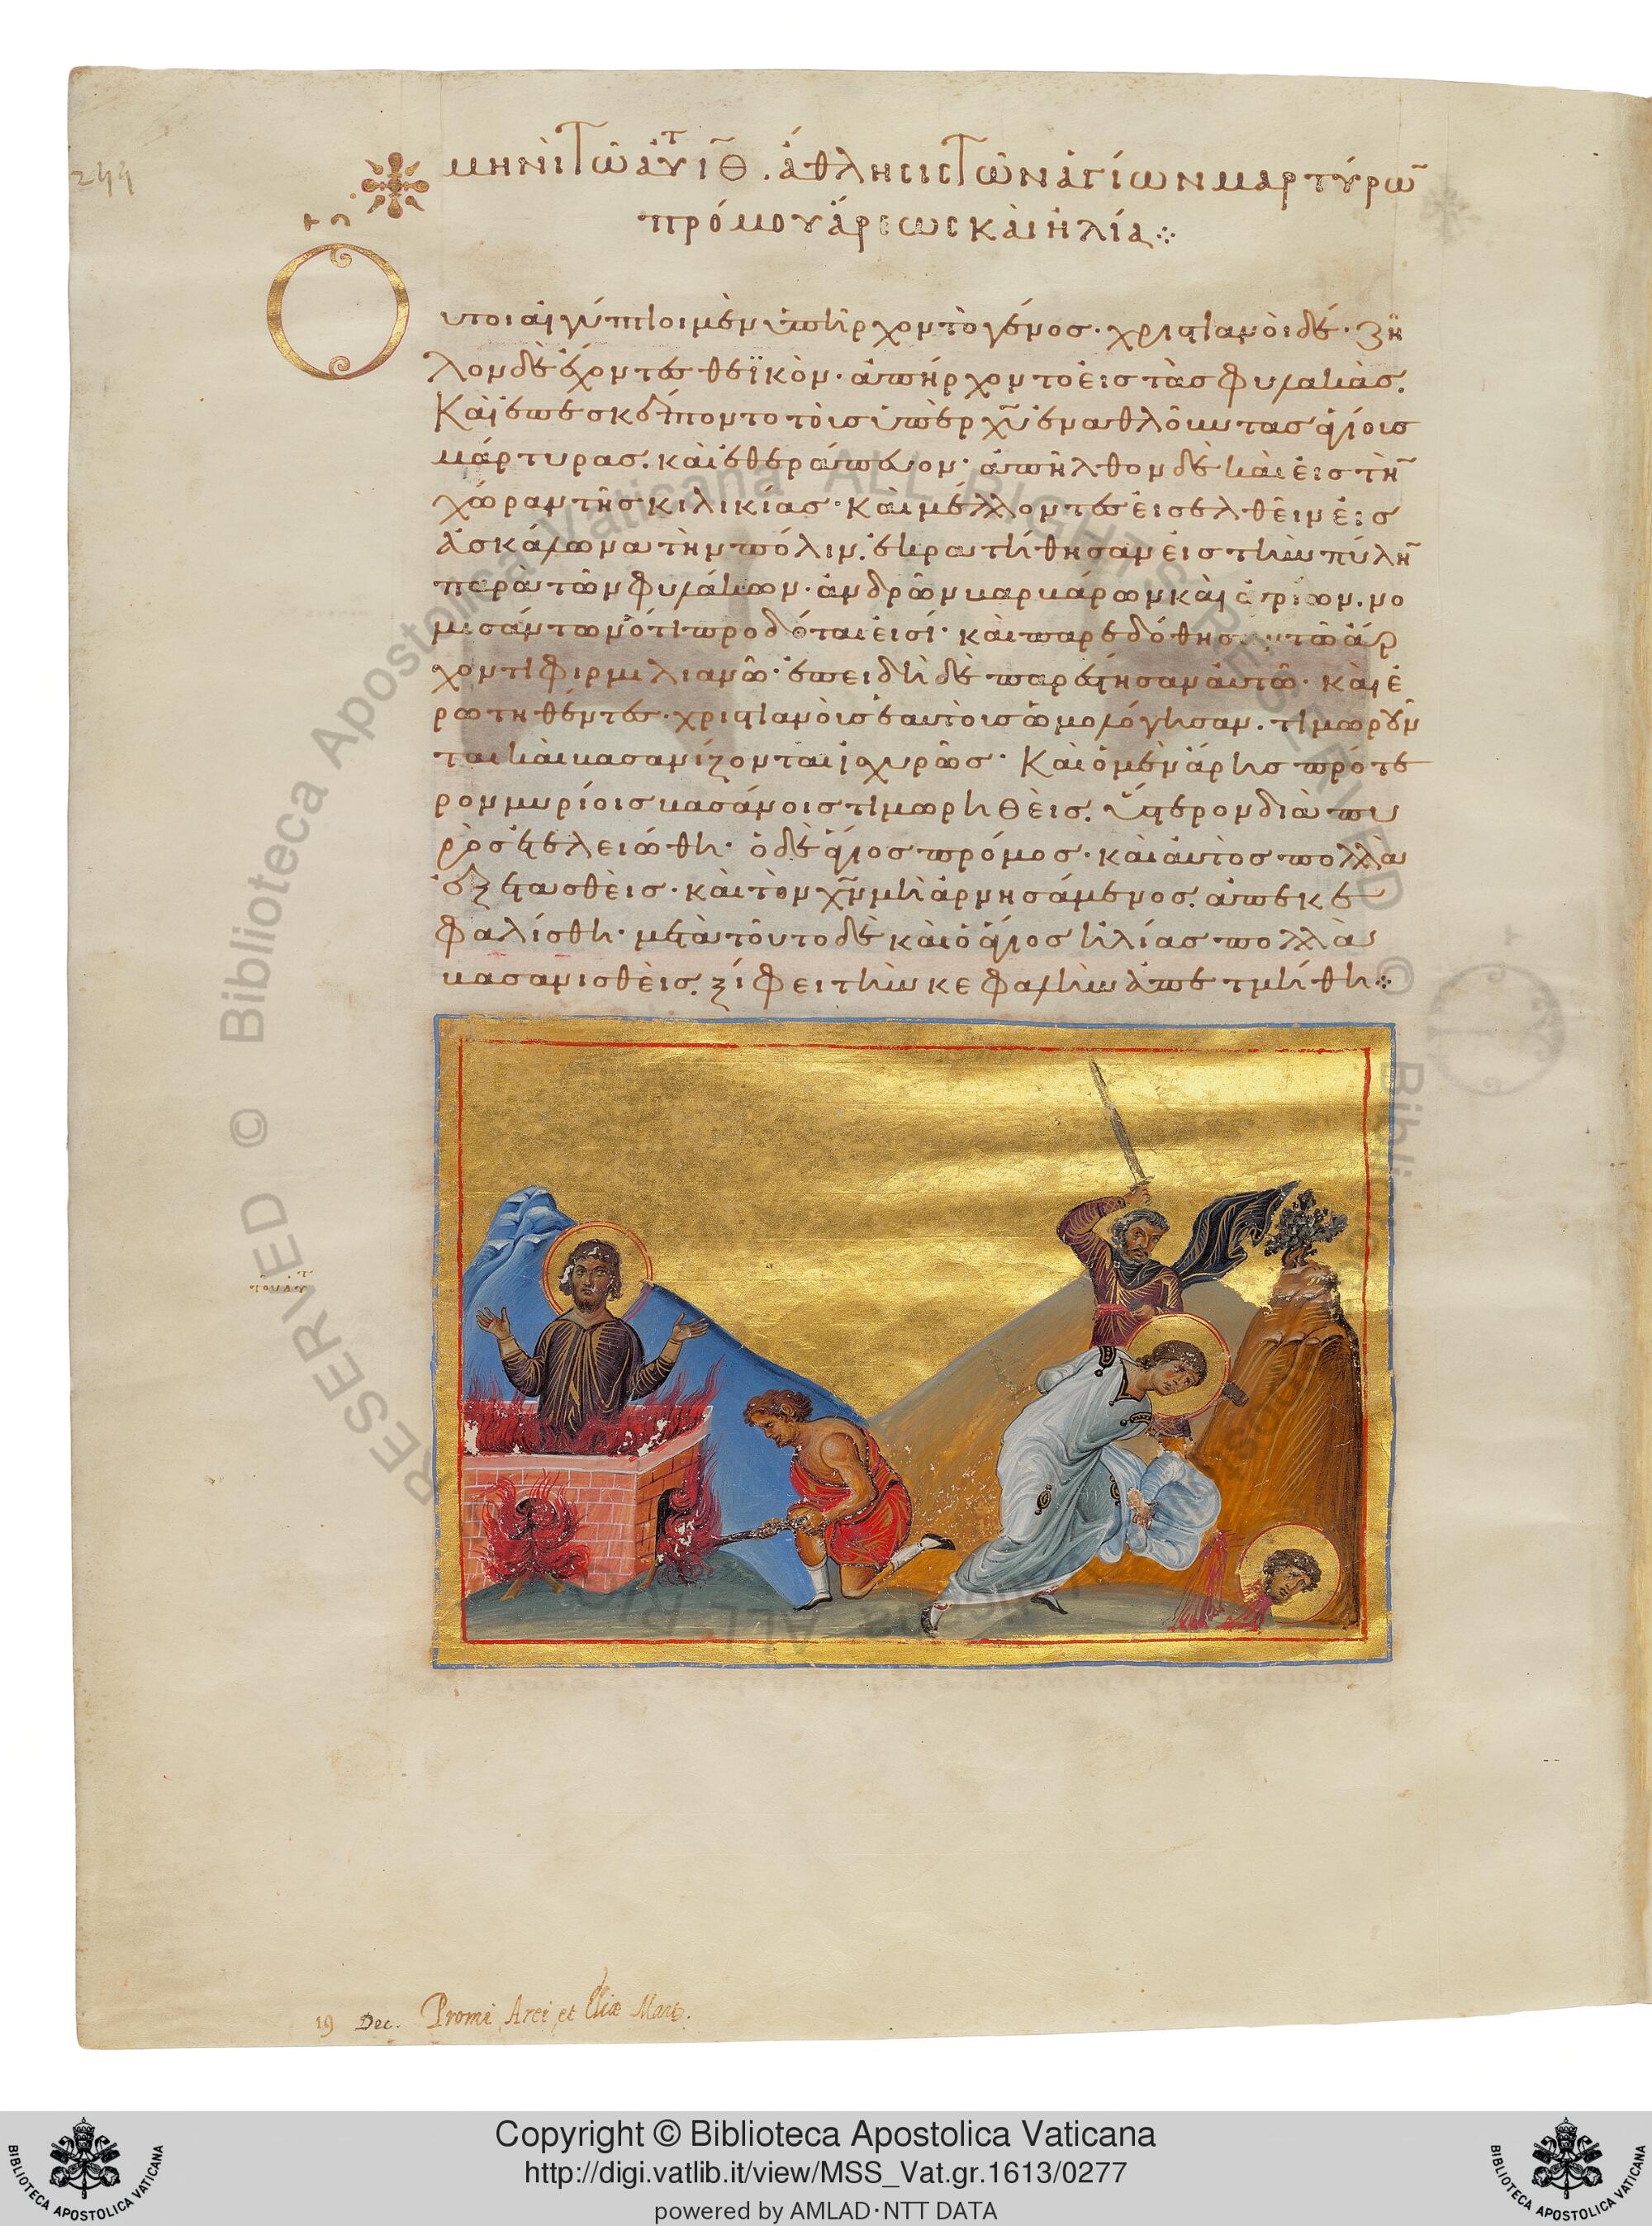 244
μηνὶ τῶ ἀυτ ιθ. ἄθλησις τῶν ἁγίων μαρτύρω̃
πρόμου ἄρεως καὶ ἡλία
Ουτοι αἰγύπτιοι μὲν ὑπῆρχον τὸ γένος· χριστιανὸι δέ· ζῆ
λον δὲ ἔχοντες θεϊκὸν· ἀπήρχοντο ἐις τὰς φυλακὰς.
Καὶ ἐπεσκέπτοντο τοὺς ὑπὲρ χυ̃ ἐναθλοῦντας ἁγίους
μάρτυρας. καὶ ἐθεράπευον· ἀπῆλθον δὲ καὶ ἐις τὴ̃
χώραν τῆς κιλικίας· Καὶ μέλλοντες ἐισελθεῖν ἐις
ἀσκάλωνα τὴν πόλιν. ἐκρατήθησαν ἐις τὴν πύλη̃
παρὰ τῶν φυλάκων· ἀνδρῶν βαρβάρων καὶ ἀγρίων. νο
μισάντων ὅτι προδόται εἰσί· καὶ παρεδόθησαν τῶ ἄρ
χοντι φιρμιλιανῶ· ἐπειδὴ δὲ παρέστησαν ἀυτῶ· καὶ ἐ
ρωτηθέντες· χριστιανοὺς ἑαυτοὺς ὡμολόγησαν. τιμωροῦν
ται καὶ βασανίζονται ἰσχυρῶς· Καὶ ὁ μὲν ἄρης πρότε
ρον μυρίοις βασάνοις τιμωρηθεὶς. ὕστερον διὰ πυ
ρὸς ἐτελειώθη· ὁ δὲ ἅγιος πρόμος· καὶ ἀυτὸς πολλὰ
ἐξετασθεὶς· καὶ τὸν χν̃ μὴ ἀρνησάμενος. ἀπεκε
φαλίσθη· μετὰ τοῦτο δὲ καὶ ὁ ἅγιος ἡλίας πολλὰ
βασανισθεὶς. ξίφει τὴν κεφαλὴν ἀπετμήθη
19 Dec. Promi, Arei, et Eliæ Mart.
Copyright © Biblioteca Apostolica Vaticana
http://digi.vatlib.it/view/MSS_Vat.gr.1613/0277
powered by AMLAD·NTT DATA
BIBLIOTECA APOSTOLICA VATICANA
BIBLIOTECA APOSTOLICA VATICANA